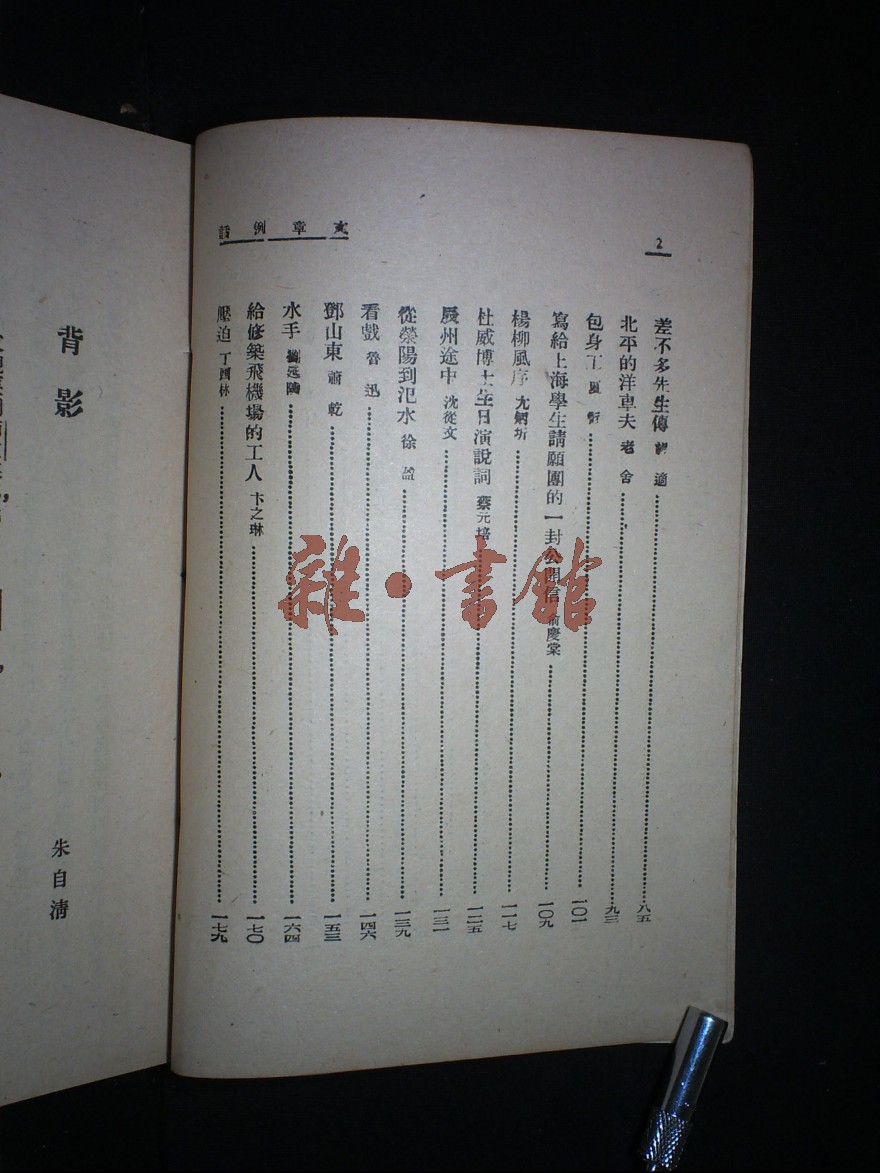 2
文章例話
差不多先生傳 胡適 八五
北平的洋車夫 老舍 九三
包身工 夏衍 一〇一
寫給上海學生請願團的一封公開信 俞慶棠 一〇九
楊柳風序 尤炳圻 一一七
杜威博士生日演說詞 蔡元培 一二五
辰州途中 沈從文 一三一
從滎陽到汜水 徐盈 一三九
看戲 魯迅 一四六
鄧山東 蕭乾 一五三
水手 劉延陵 一六四
給修築飛機場的工人 卞之琳 一七〇
壓迫 丁西林 一七九
背影
朱自清
雜·書館